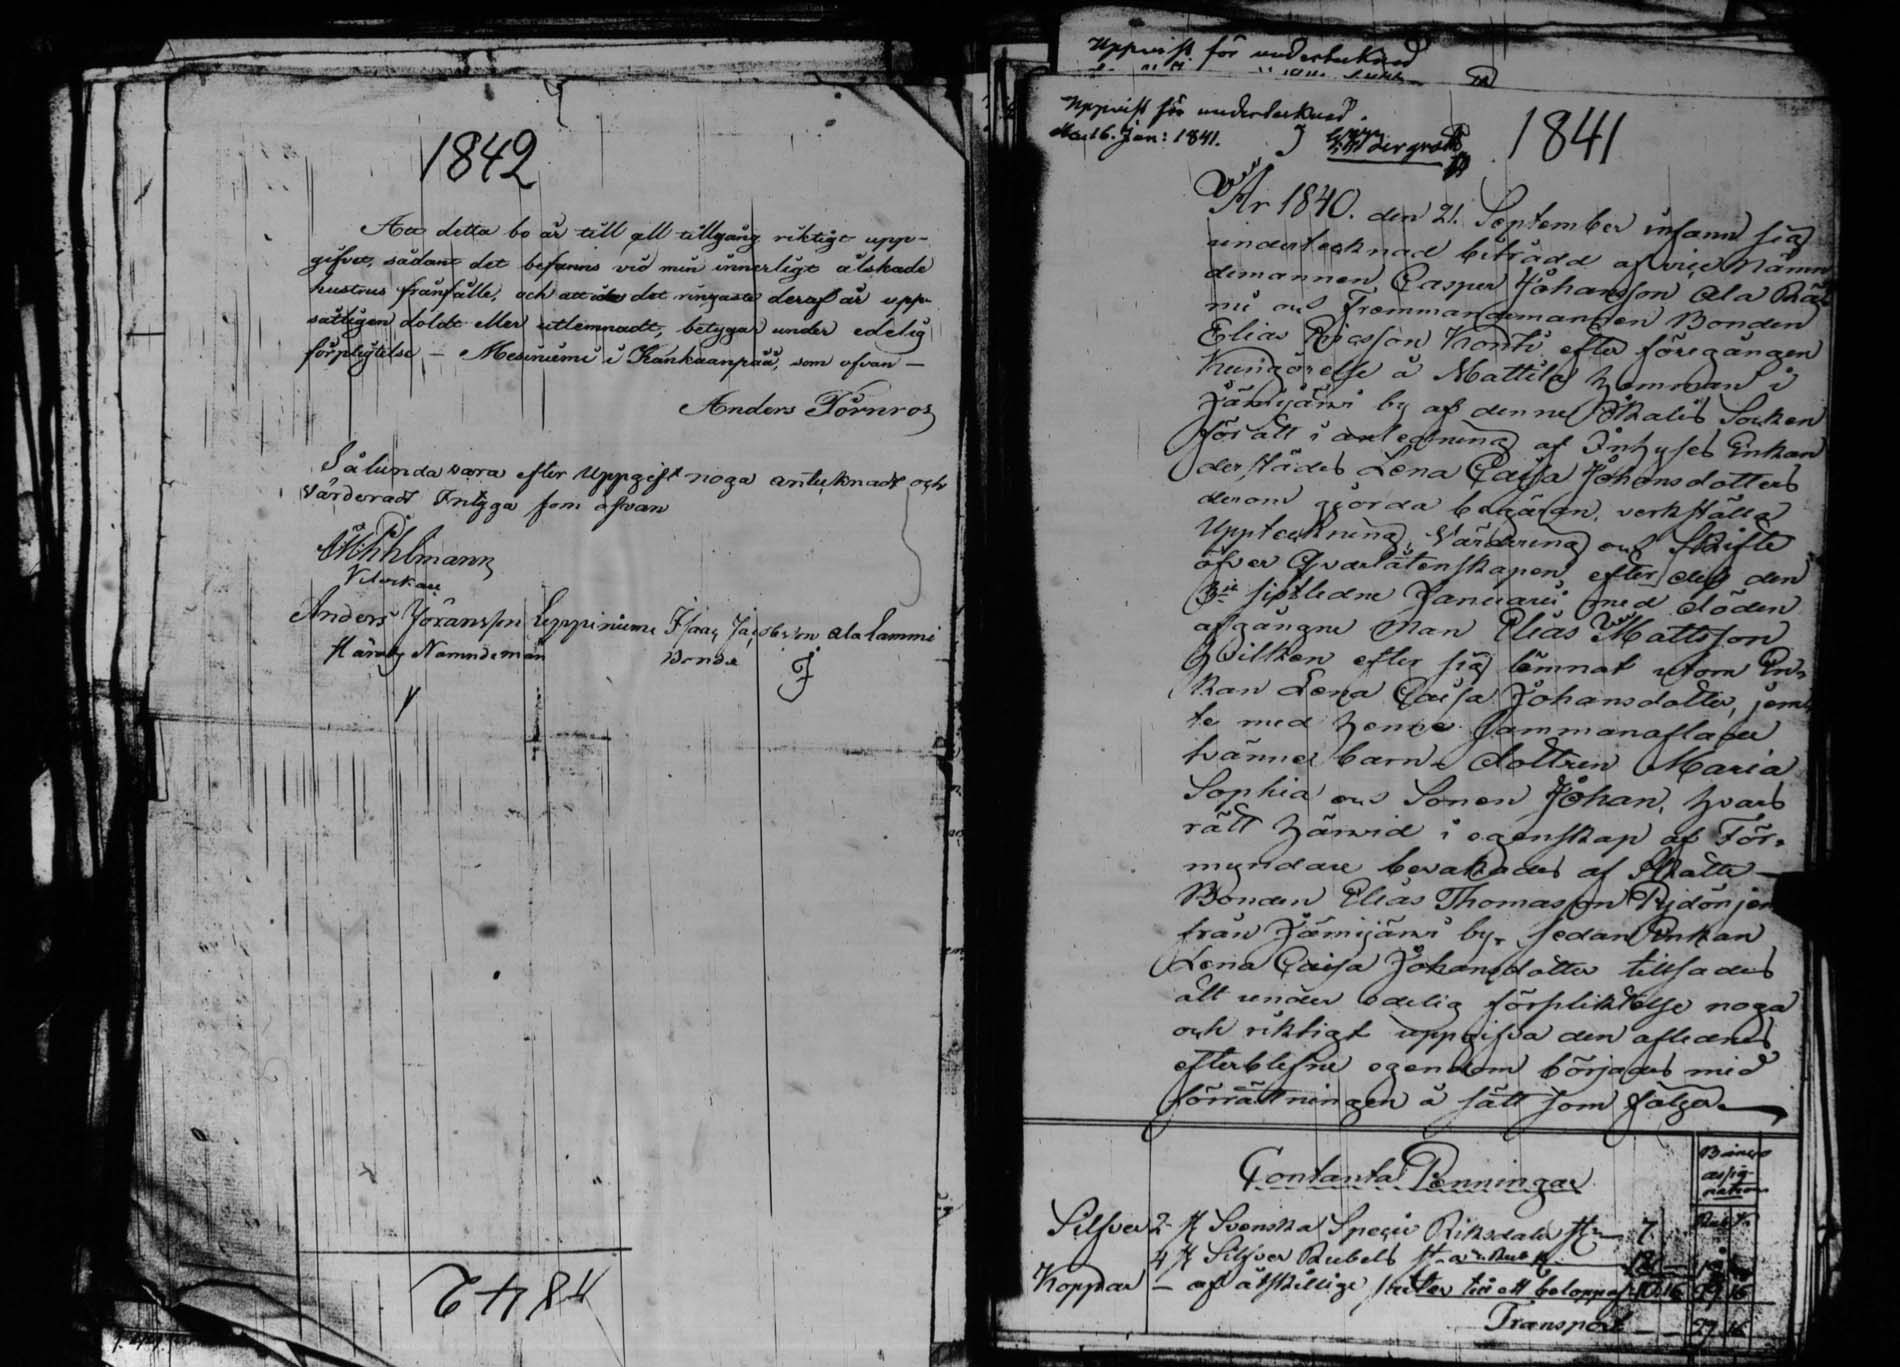 1842
Att detta bo är till all tillgång riktigt upp-
gifvet, sådant det befanns vid min innerligt älskade
hustrus frånfälle, och att icke det ringaste deraf är upp-
såtligen doldt eller utlemnadt, betygar under edelig
förpligtelse – Mesiniemi i Kankaanpää, som ofvan –
Anders Törnros
Sålunda vara efter uppgift noga antecknadt och
Värderadt Intyga som ofvan
Pihlmann
Anders Jöransson Leppiniemi Isaac Jacobsson Ala Lammi
Härads Nämndeman Bonde
1842
Uppvist för undertecknad
Uppvist för undertecknad.
16. Jan: 1841.
1841
År 1840. den 21. September infann sig
undertecknad biträdd af vice Nämn
demannen Casper Johansson Ala
och Fremmandemannen Bonden
Elias Ericsson Konti efter föregången
Kungörelse å Mattila hemman i
Jämijärvi by af denne Ikalis Socken
för att i anledning af Inhyses Enkan
derstädes Lena Caisa Johansdotters
derom gjorda begäran, verkställa
Uppteckning, Värdering och Skifte
öfver Qvarlåtenskapen efter dess den
sistledne Januarii med döden
afgångne Man Elias Mattsson
Hvilken efter sig lämnat utom En-
kan Lena Caisa Johansdotter, jem
te med henne sammanaflade
tvänne barn, dottren Maria
Sophia och Sonen Johan, hvars
rätt härvid i egenskap af För-
myndare bevakades af Skatte
Bonden Elias Thomasson
från Jämijärvi by, sedan Enkan
Lena Caisa Johansdotter tillsades
att under edelig förpliktelse noga
och riktigt uppgifva den aflednes
efterblefne egendom börjades med
förrättningen å sätt som följer
Contanta Penningar
Banco
assig
nation
Silfver 2 st Svenska Specie Riksdaler 7
4 st Silfver Rubels
Koppar – af åtskillige sorter till ett belopp af 10.16
Transport 27 16